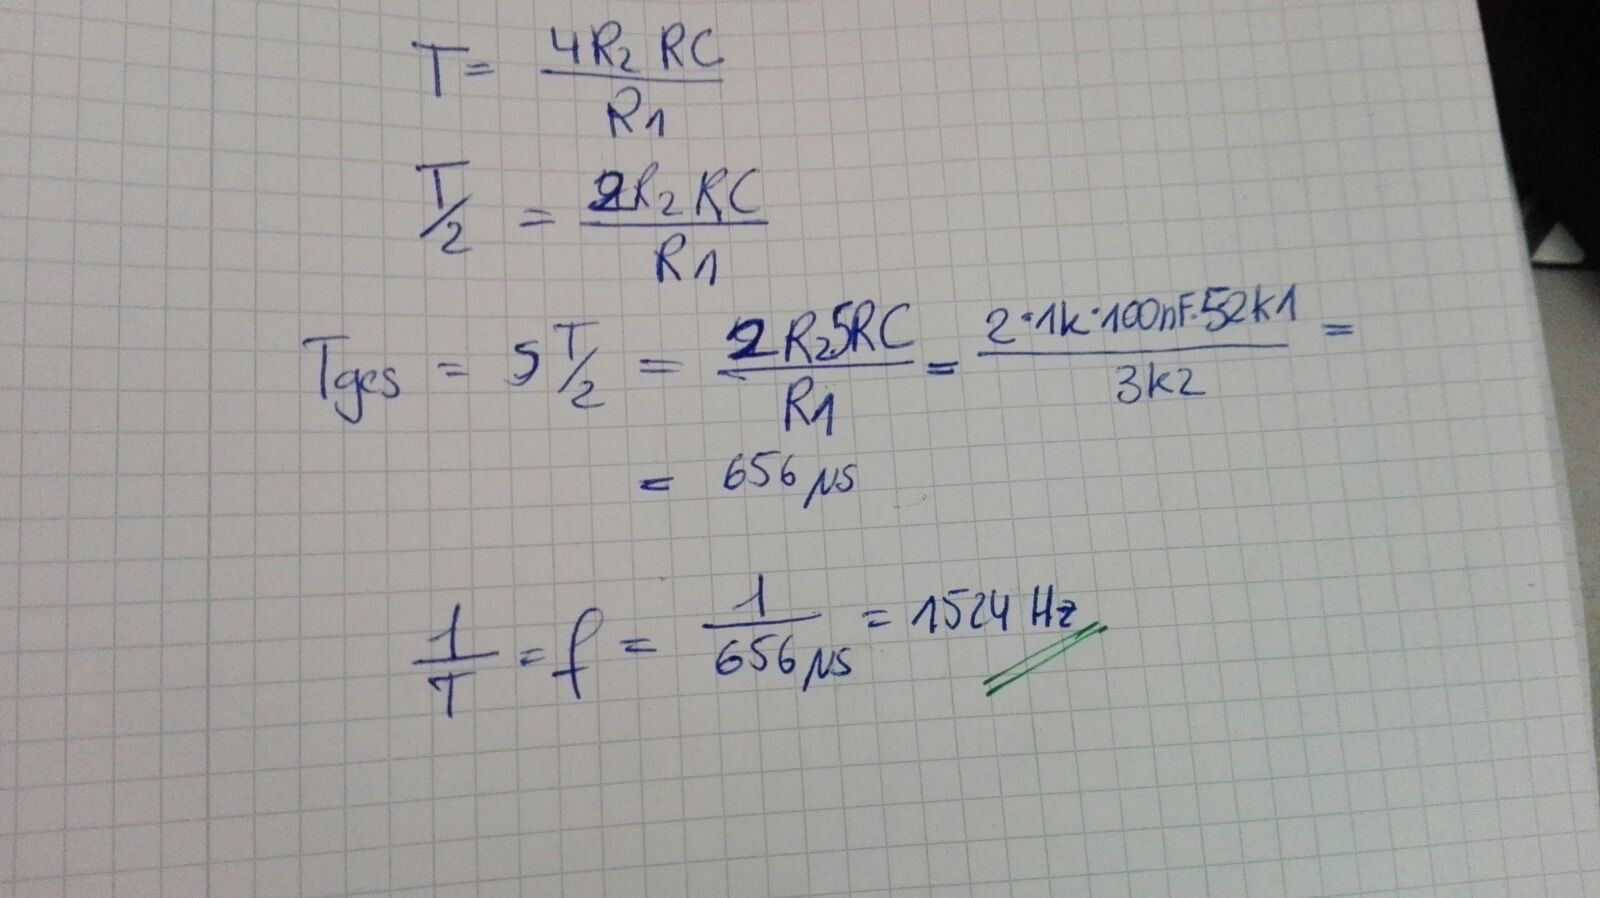 T = 4R2 RC / R1
T/2 = 2R2 RC / R1
Tges = 5 T/2 = 2R2 5RC / R1 = 2·1k·100nF·52k1 / 3k2 =
= 656 µs
1/T = f = 1 / 656 µs = 1524 Hz